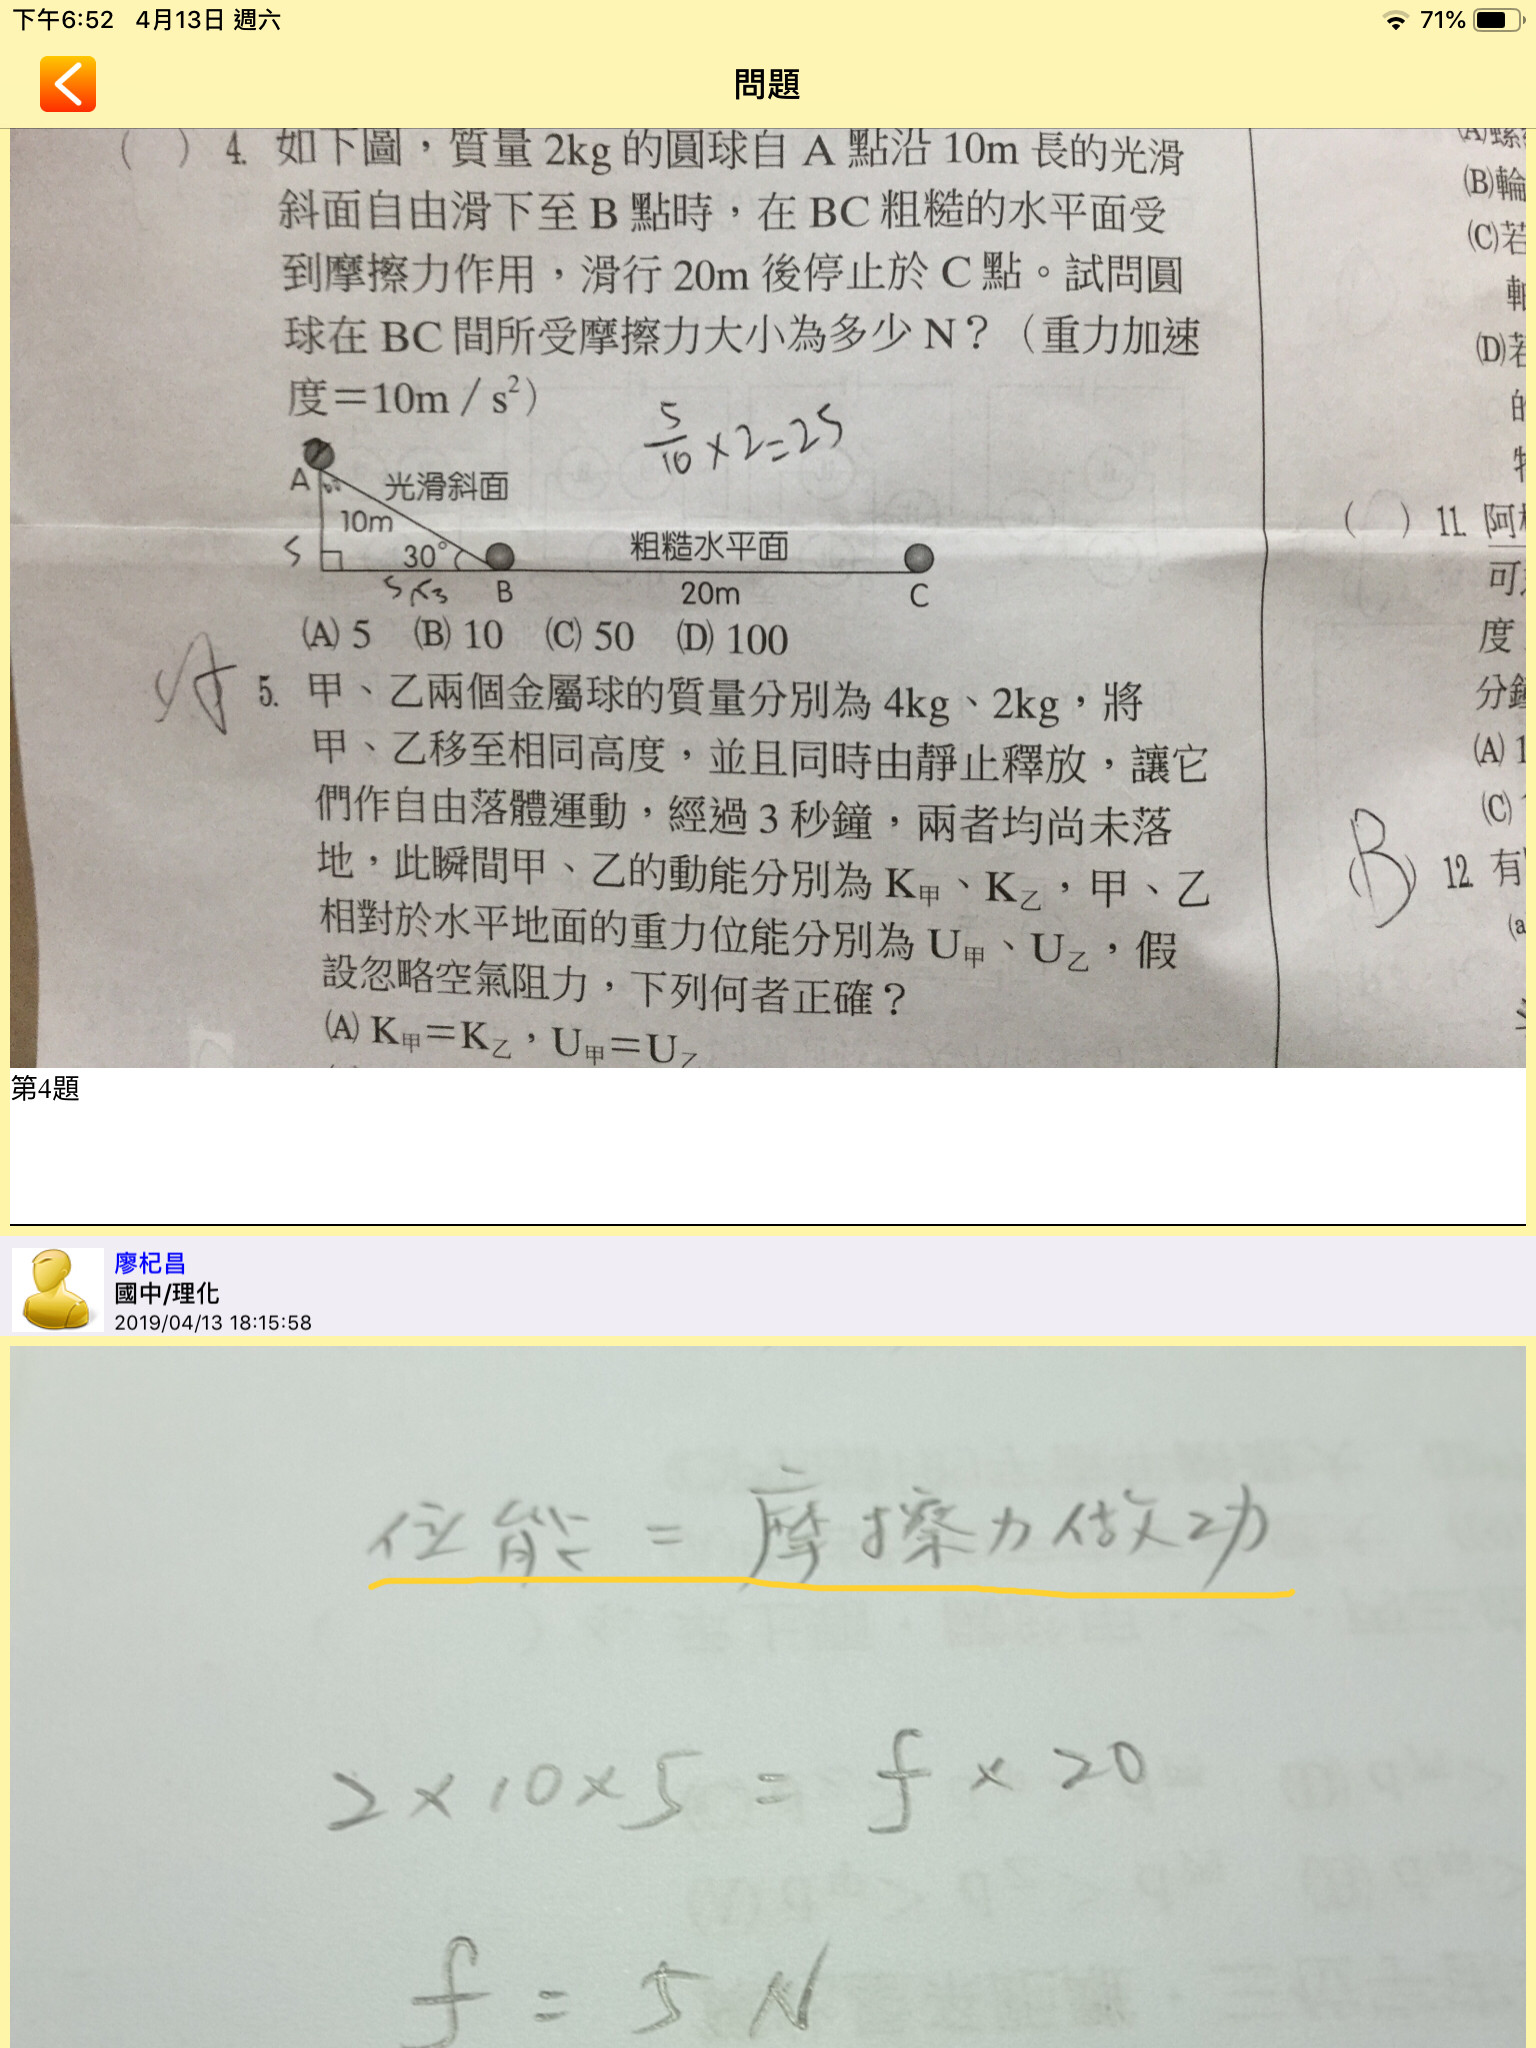 下午6:52 4月13日 週六 71%
問題
( ) 4. 如下圖，質量 2kg 的圓球自 A 點沿 10m 長的光滑
斜面自由滑下至 B 點時，在 BC 粗糙的水平面受
到摩擦力作用，滑行 20m 後停止於 C 點。試問圓
球在 BC 間所受摩擦力大小為多少 N？（重力加速
度＝10m／s²）
5/10 × 2 = 25
A 光滑斜面
10m
5 30° 粗糙水平面
5√3 B 20m C
(A) 5 (B) 10 (C) 50 (D) 100
5. 甲、乙兩個金屬球的質量分別為 4kg、2kg，將
甲、乙移至相同高度，並且同時由靜止釋放，讓它
們作自由落體運動，經過 3 秒鐘，兩者均尚未落
地，此瞬間甲、乙的動能分別為 K甲、K乙，甲、乙
相對於水平地面的重力位能分別為 U甲、U乙，假
設忽略空氣阻力，下列何者正確？
(A) K甲＝K乙，U甲＝U乙
(B)輪
(C)若
軸
(D)若
的
( ) 11. 阿
可
度
分鐘
(A) 1
(C)
(B) 12. 有
(a
第4題
廖杞昌
國中/理化
2019/04/13 18:15:58
位能 = 摩擦力做功
2×10×5 = f × 20
f = 5 N